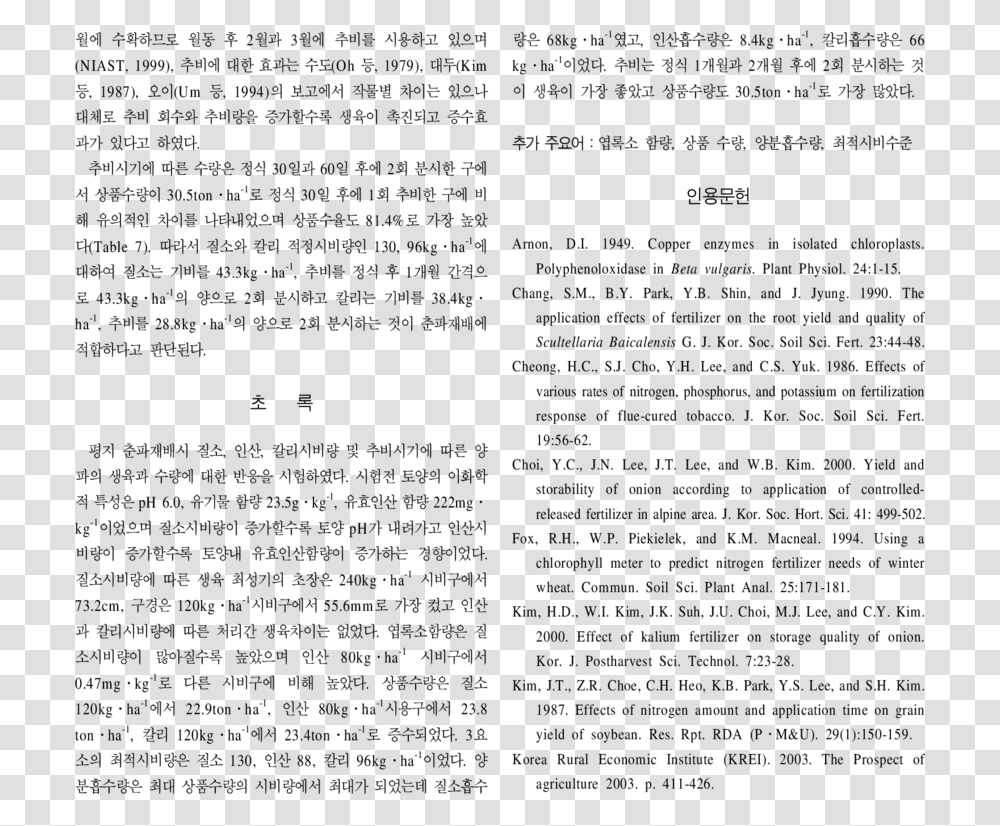 월에 수확하므로 월동 후 2월과 3월에 추비를 시용하고 있으며
(NIAST, 1999), 추비에 대한 효과는 수도(Oh 등, 1979), 대두(Kim
등, 1987), 오이(Um 등, 1994)의 보고에서 작물별 차이는 있으나
대체로 추비 회수와 추비량을 증가할수록 생육이 촉진되고 증수효
과가 있다고 하였다.
추비시기에 따른 수량은 정식 30일과 60일 후에 2회 분시한 구에
서 상품수량이 30.5ton·ha⁻¹로 정식 30일 후에 1회 추비한 구에 비
해 유의적인 차이를 나타내었으며 상품수율도 81.4%로 가장 높았
다(Table 7). 따라서 질소와 칼리 적정시비량인 130, 96kg·ha⁻¹에
대하여 질소는 기비를 43.3kg·ha⁻¹, 추비를 정식 후 1개월 간격으
로 43.3kg·ha⁻¹의 양으로 2회 분시하고 칼리는 기비를 38.4kg·
ha⁻¹, 추비를 28.8kg·ha⁻¹의 양으로 2회 분시하는 것이 춘파재배에
적합하다고 판단된다.
초 록
평지 춘파재배시 질소, 인산, 칼리시비량 및 추비시기에 따른 양
파의 생육과 수량에 대한 반응을 시험하였다. 시험전 토양의 이화학
적 특성은 pH 6.0, 유기물 함량 23.5g·kg⁻¹, 유효인산 함량 222mg·
kg⁻¹이었으며 질소시비량이 증가할수록 토양 pH가 내려가고 인산시
비량이 증가할수록 토양내 유효인산함량이 증가하는 경향이었다.
질소시비량에 따른 생육 최성기의 초장은 240kg·ha⁻¹ 시비구에서
73.2cm, 구경은 120kg·ha⁻¹시비구에서 55.6mm로 가장 컸고 인산
과 칼리시비량에 따른 처리간 생육차이는 없었다. 엽록소함량은 질
소시비량이 많아질수록 높았으며 인산 80kg·ha⁻¹ 시비구에서
0.47mg·kg⁻¹로 다른 시비구에 비해 높았다. 상품수량은 질소
120kg·ha⁻¹에서 22.9ton·ha⁻¹, 인산 80kg·ha⁻¹시용구에서 23.8
ton·ha⁻¹, 칼리 120kg·ha⁻¹에서 23.4ton·ha⁻¹로 증수되었다. 3요
소의 최적시비량은 질소 130, 인산 88, 칼리 96kg·ha⁻¹이었다. 양
분흡수량은 최대 상품수량의 시비량에서 최대가 되었는데 질소흡수
량은 68kg·ha⁻¹였고, 인산흡수량은 8.4kg·ha⁻¹, 칼리흡수량은 66
kg·ha⁻¹이었다. 추비는 정식 1개월과 2개월 후에 2회 분시하는 것
이 생육이 가장 좋았고 상품수량도 30.5ton·ha⁻¹로 가장 많았다.
추가 주요어 : 엽록소 함량, 상품 수량, 양분흡수량, 최적시비수준
인용문헌
Arnon, D.I. 1949. Copper enzymes in isolated chloroplasts.
Polyphenoloxidase in Beta vulgaris. Plant Physiol. 24:1-15.
Chang, S.M., B.Y. Park, Y.B. Shin, and J. Jyung. 1990. The
application effects of fertilizer on the root yield and quality of
Scultellaria Baicalensis G. J. Kor. Soc. Soil Sci. Fert. 23:44-48.
Cheong, H.C., S.J. Cho, Y.H. Lee, and C.S. Yuk. 1986. Effects of
various rates of nitrogen, phosphorus, and potassium on fertilization
response of flue-cured tobacco. J. Kor. Soc. Soil Sci. Fert.
19:56-62.
Choi, Y.C., J.N. Lee, J.T. Lee, and W.B. Kim. 2000. Yield and
storability of onion according to application of controlled-
released fertilizer in alpine area. J. Kor. Soc. Hort. Sci. 41: 499-502.
Fox, R.H., W.P. Piekielek, and K.M. Macneal. 1994. Using a
chlorophyll meter to predict nitrogen fertilizer needs of winter
wheat. Commun. Soil Sci. Plant Anal. 25:171-181.
Kim, H.D., W.I. Kim, J.K. Suh, J.U. Choi, M.J. Lee, and C.Y. Kim.
2000. Effect of kalium fertilizer on storage quality of onion.
Kor. J. Postharvest Sci. Technol. 7:23-28.
Kim, J.T., Z.R. Choe, C.H. Heo, K.B. Park, Y.S. Lee, and S.H. Kim.
1987. Effects of nitrogen amount and application time on grain
yield of soybean. Res. Rpt. RDA (P·M&U). 29(1):150-159.
Korea Rural Economic Institute (KREI). 2003. The Prospect of
agriculture 2003. p. 411-426.